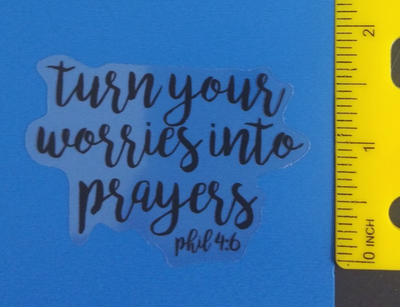 turn your
worries into
prayers
phil 4:6
2
1
0 INCH